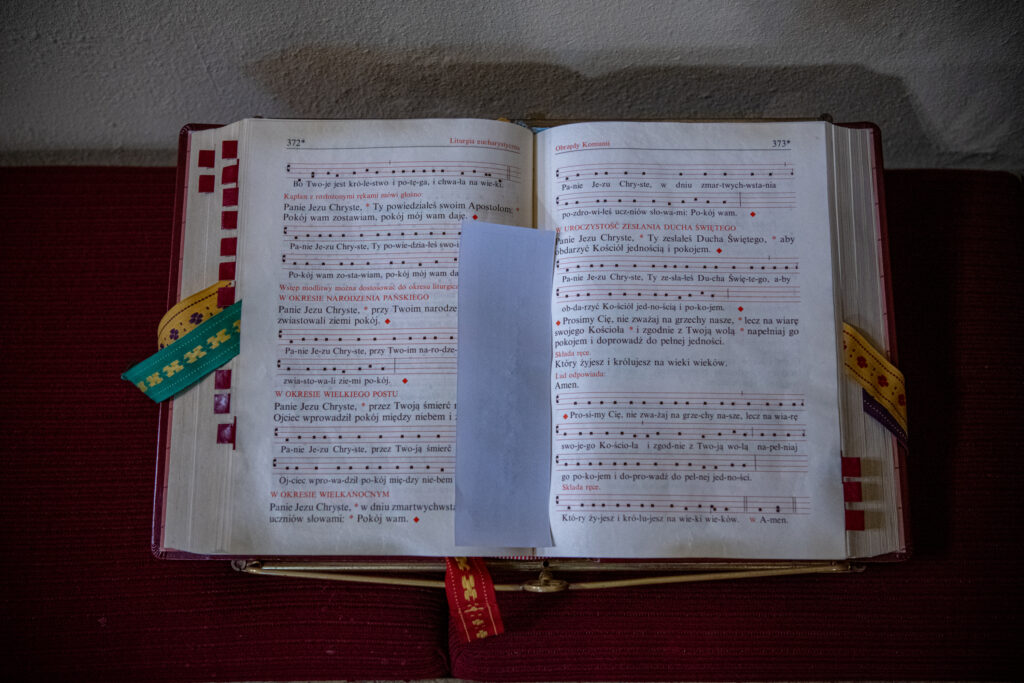 372*
Liturgia eucharystyczna
Bo Two-je jest kró-le-stwo i po-tę-ga, i chwa-ła na wie-ki.
Kapłan z rozłożonymi rękami mówi głośno:
Panie Jezu Chryste, * Ty powiedziałeś swoim Apostołom: *
Pokój wam zostawiam, pokój mój wam daję. ◆
Pa-nie Je-zu Chry-ste, Ty po-wie-dzia-łeś swo-i-
Po-kój wam zo-sta-wiam, po-kój mój wam
Wstęp modlitwy można dostosować do okresu liturgicz
W OKRESIE NARODZENIA PAŃSKIEGO
Panie Jezu Chryste, * przy Twoim narodze
zwiastowali ziemi pokój. ◆
Pa-nie Je-zu Chry-ste, przy Two-im na-ro-dze-
zwia-sto-wa-li zie-mi po-kój. ◆
W OKRESIE WIELKIEGO POSTU
Panie Jezu Chryste, * przez Twoją śmierć
Ojciec wprowadził pokój między niebem i
Pa-nie Je-zu Chry-ste, przez Two-ją śmierć
Oj-ciec wpro-wa-dził po-kój mię-dzy nie-bem
W OKRESIE WIELKANOCNYM
Panie Jezu Chryste, * w dniu zmartwychwsta
uczniów słowami: * Pokój wam. ◆
Obrzędy Komunii
373*
Pa-nie Je-zu Chry-ste, w dniu zmar-twych-wsta-nia
po-zdro-wi-łeś ucz-niów sło-wa-mi: Po-kój wam. ◆
W UROCZYSTOŚĆ ZESŁANIA DUCHA ŚWIĘTEGO
Panie Jezu Chryste, * Ty zesłałeś Ducha Świętego, * aby
obdarzyć Kościół jednością i pokojem. ◆
Pa-nie Je-zu Chry-ste, Ty ze-sła-łeś Du-cha Świę-te-go, a-by
ob-da-rzyć Ko-ściół jed-no-ścią i po-ko-jem. ◆
◆ Prosimy Cię, nie zważaj na grzechy nasze, * lecz na wiarę
swojego Kościoła * i zgodnie z Twoją wolą * napełniaj go
pokojem i doprowadź do pełnej jedności.
Składa ręce.
Który żyjesz i królujesz na wieki wieków.
Lud odpowiada:
Amen.
◆ Pro-si-my Cię, nie zwa-żaj na grze-chy na-sze, lecz na wia-rę
swo-je-go Ko-ścio-ła i zgod-nie z Two-ją wo-lą na-peł-niaj
go po-ko-jem i do-pro-wadź do peł-nej jed-no-ści.
Składa ręce.
Któ-ry ży-jesz i kró-lu-jesz na wie-ki wie-ków. W. A-men.